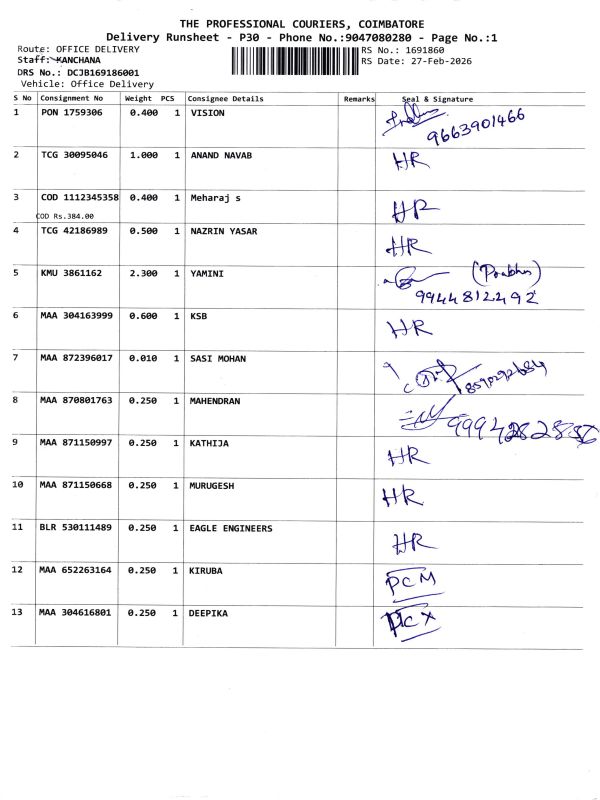 THE PROFESSIONAL COURIERS, COIMBATORE
Delivery Runsheet - P30 - Phone No.:9047080280 - Page No.:1
Route: OFFICE DELIVERY
RS No.: 1691860
Staff: KANCHANA
RS Date: 27-Feb-2026
DRS No.: DCJB169186001
Vehicle: Office Delivery
S No Consignment No Weight PCS Consignee Details Remarks Seal & Signature
1 PON 1759306 0.400 1 VISION 9663901466
2 TCG 30095046 1.000 1 ANAND NAVAB HR
3 COD 1112345358 0.400 1 Meharaj s HR
COD Rs.384.00
4 TCG 42186989 0.500 1 NAZRIN YASAR HR
5 KMU 3861162 2.300 1 YAMINI (Prabhu)
9944812492
6 MAA 304163999 0.600 1 KSB HR
7 MAA 872396017 0.010 1 SASI MOHAN
8 MAA 870801763 0.250 1 MAHENDRAN
9 MAA 871150997 0.250 1 KATHIJA HR
10 MAA 871150668 0.250 1 MURUGESH HR
11 BLR 530111489 0.250 1 EAGLE ENGINEERS HR
12 MAA 652263164 0.250 1 KIRUBA PCM
13 MAA 304616801 0.250 1 DEEPIKA